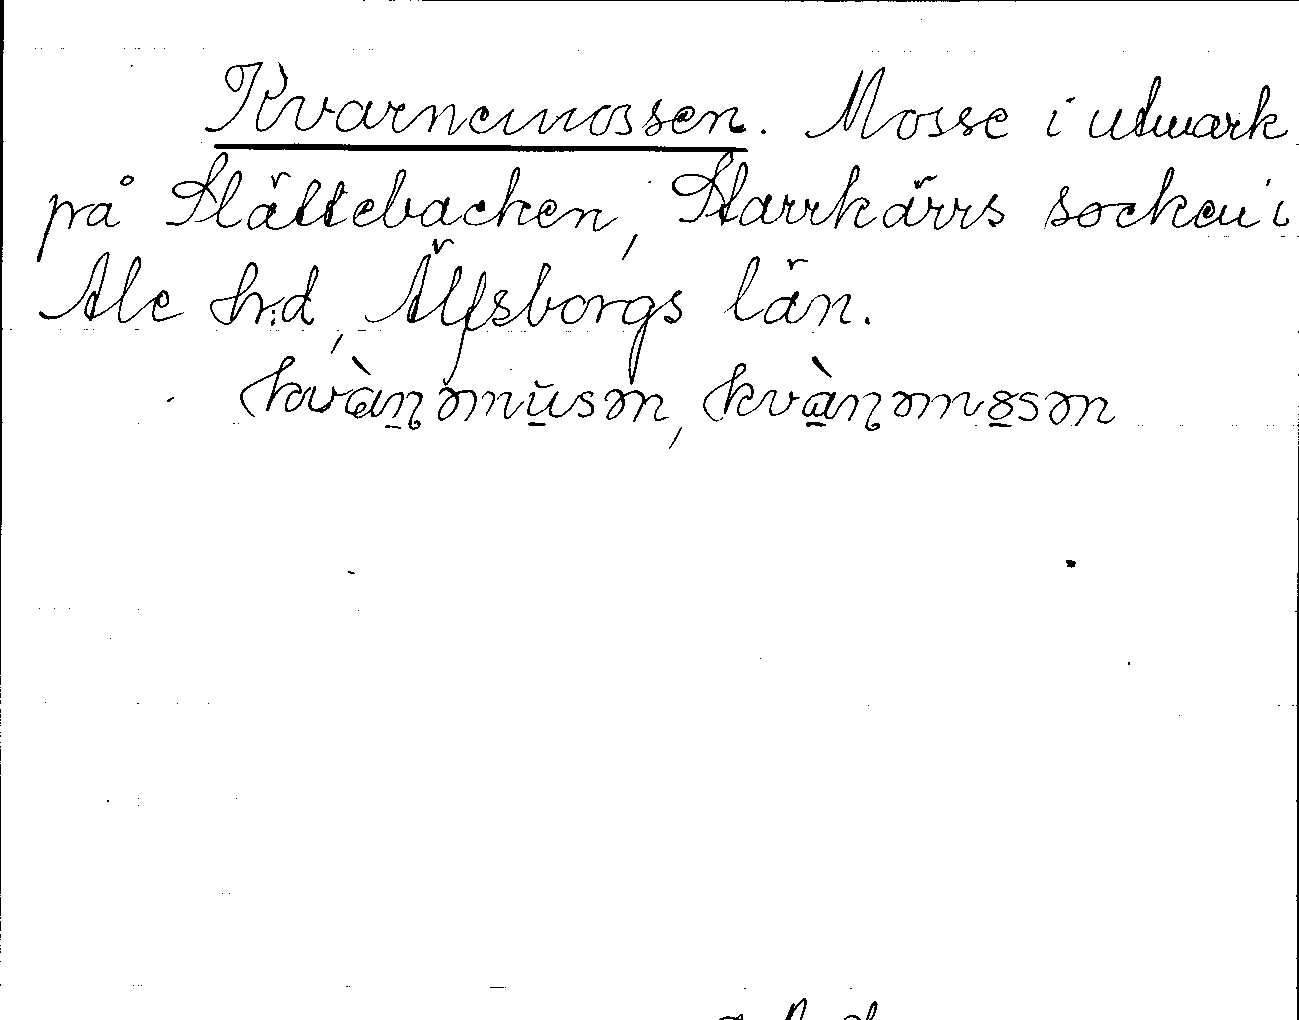 Kvarnemossen. Mosse i utmark
på Slättebacken, Starrkärrs socken i
Ale hrd, Älfsborgs län.
kvàn̠ɳəmŭ̠sən, kvà̠ɳəmo̠sən